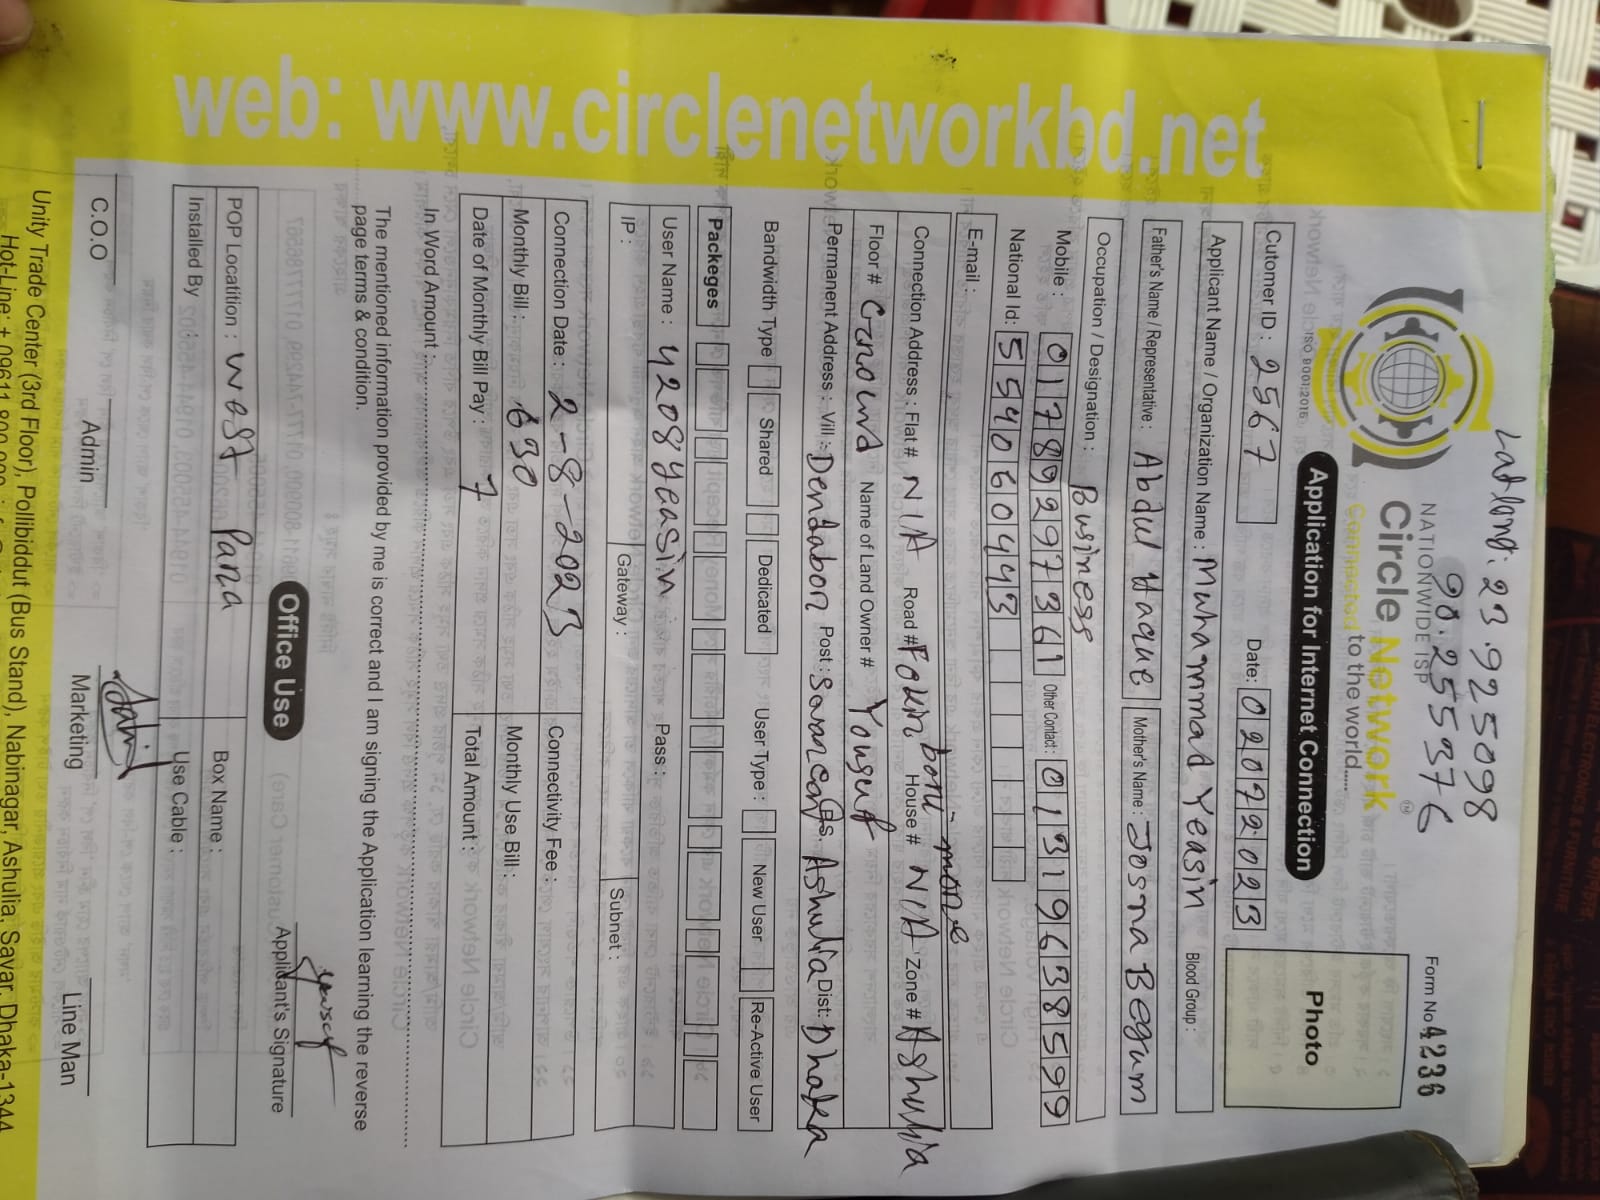 Lat long: 23.925098
90.255376
NATIONWIDE ISP
Circle Network
Connected to the world.....
ISO 9001:2016
Form No 4236
Application for Internet Connection
Photo
Cutomer ID : 2567
Date: 02072023
Applicant Name / Organization Name : Muhammad Yeasin
Blood Group :
Father's Name / Representative : Abdul Haque
Mother's Name : Josna Begum
Occupation / Designation : Business
Mobile : 01789297361
Other Contact : 01319638599
National Id: 5540604443
E-mail :
Connection Address : Flat # N/A Road # Fokin bari-more House # N/A Zone # Ashulia
Floor # Ground Name of Land Owner # Yousuf
Permanent Address : Vill : Dendabon Post : Ps. Ashulia Dist: Dhaka
Bandwidth Type Shared Dedicated User Type : New User Re-Active User
Packeges
User Name : 4208yeasin Pass :
IP : Gateway : Subnet :
Connection Date : 2-8-2023 Connectivity Fee :
Monthly Bill : 630 Monthly Use Bill :
Date of Monthly Bill Pay : 7 Total Amount :
In Word Amount :
The mentioned information provided by me is correct and I am signing the Application learning the reverse
page terms & condition.
Yousuf
Applicant's Signature
Office Use
POP Locatition : West Para Box Name :
Installed By Use Cable :
C.O.O Admin Marketing Line Man
Unity Trade Center (3rd Floor), Pollibiddut (Bus Stand), Nabinagar, Ashulia, Savar, Dhaka-1344
web: www.circlenetworkbd.net